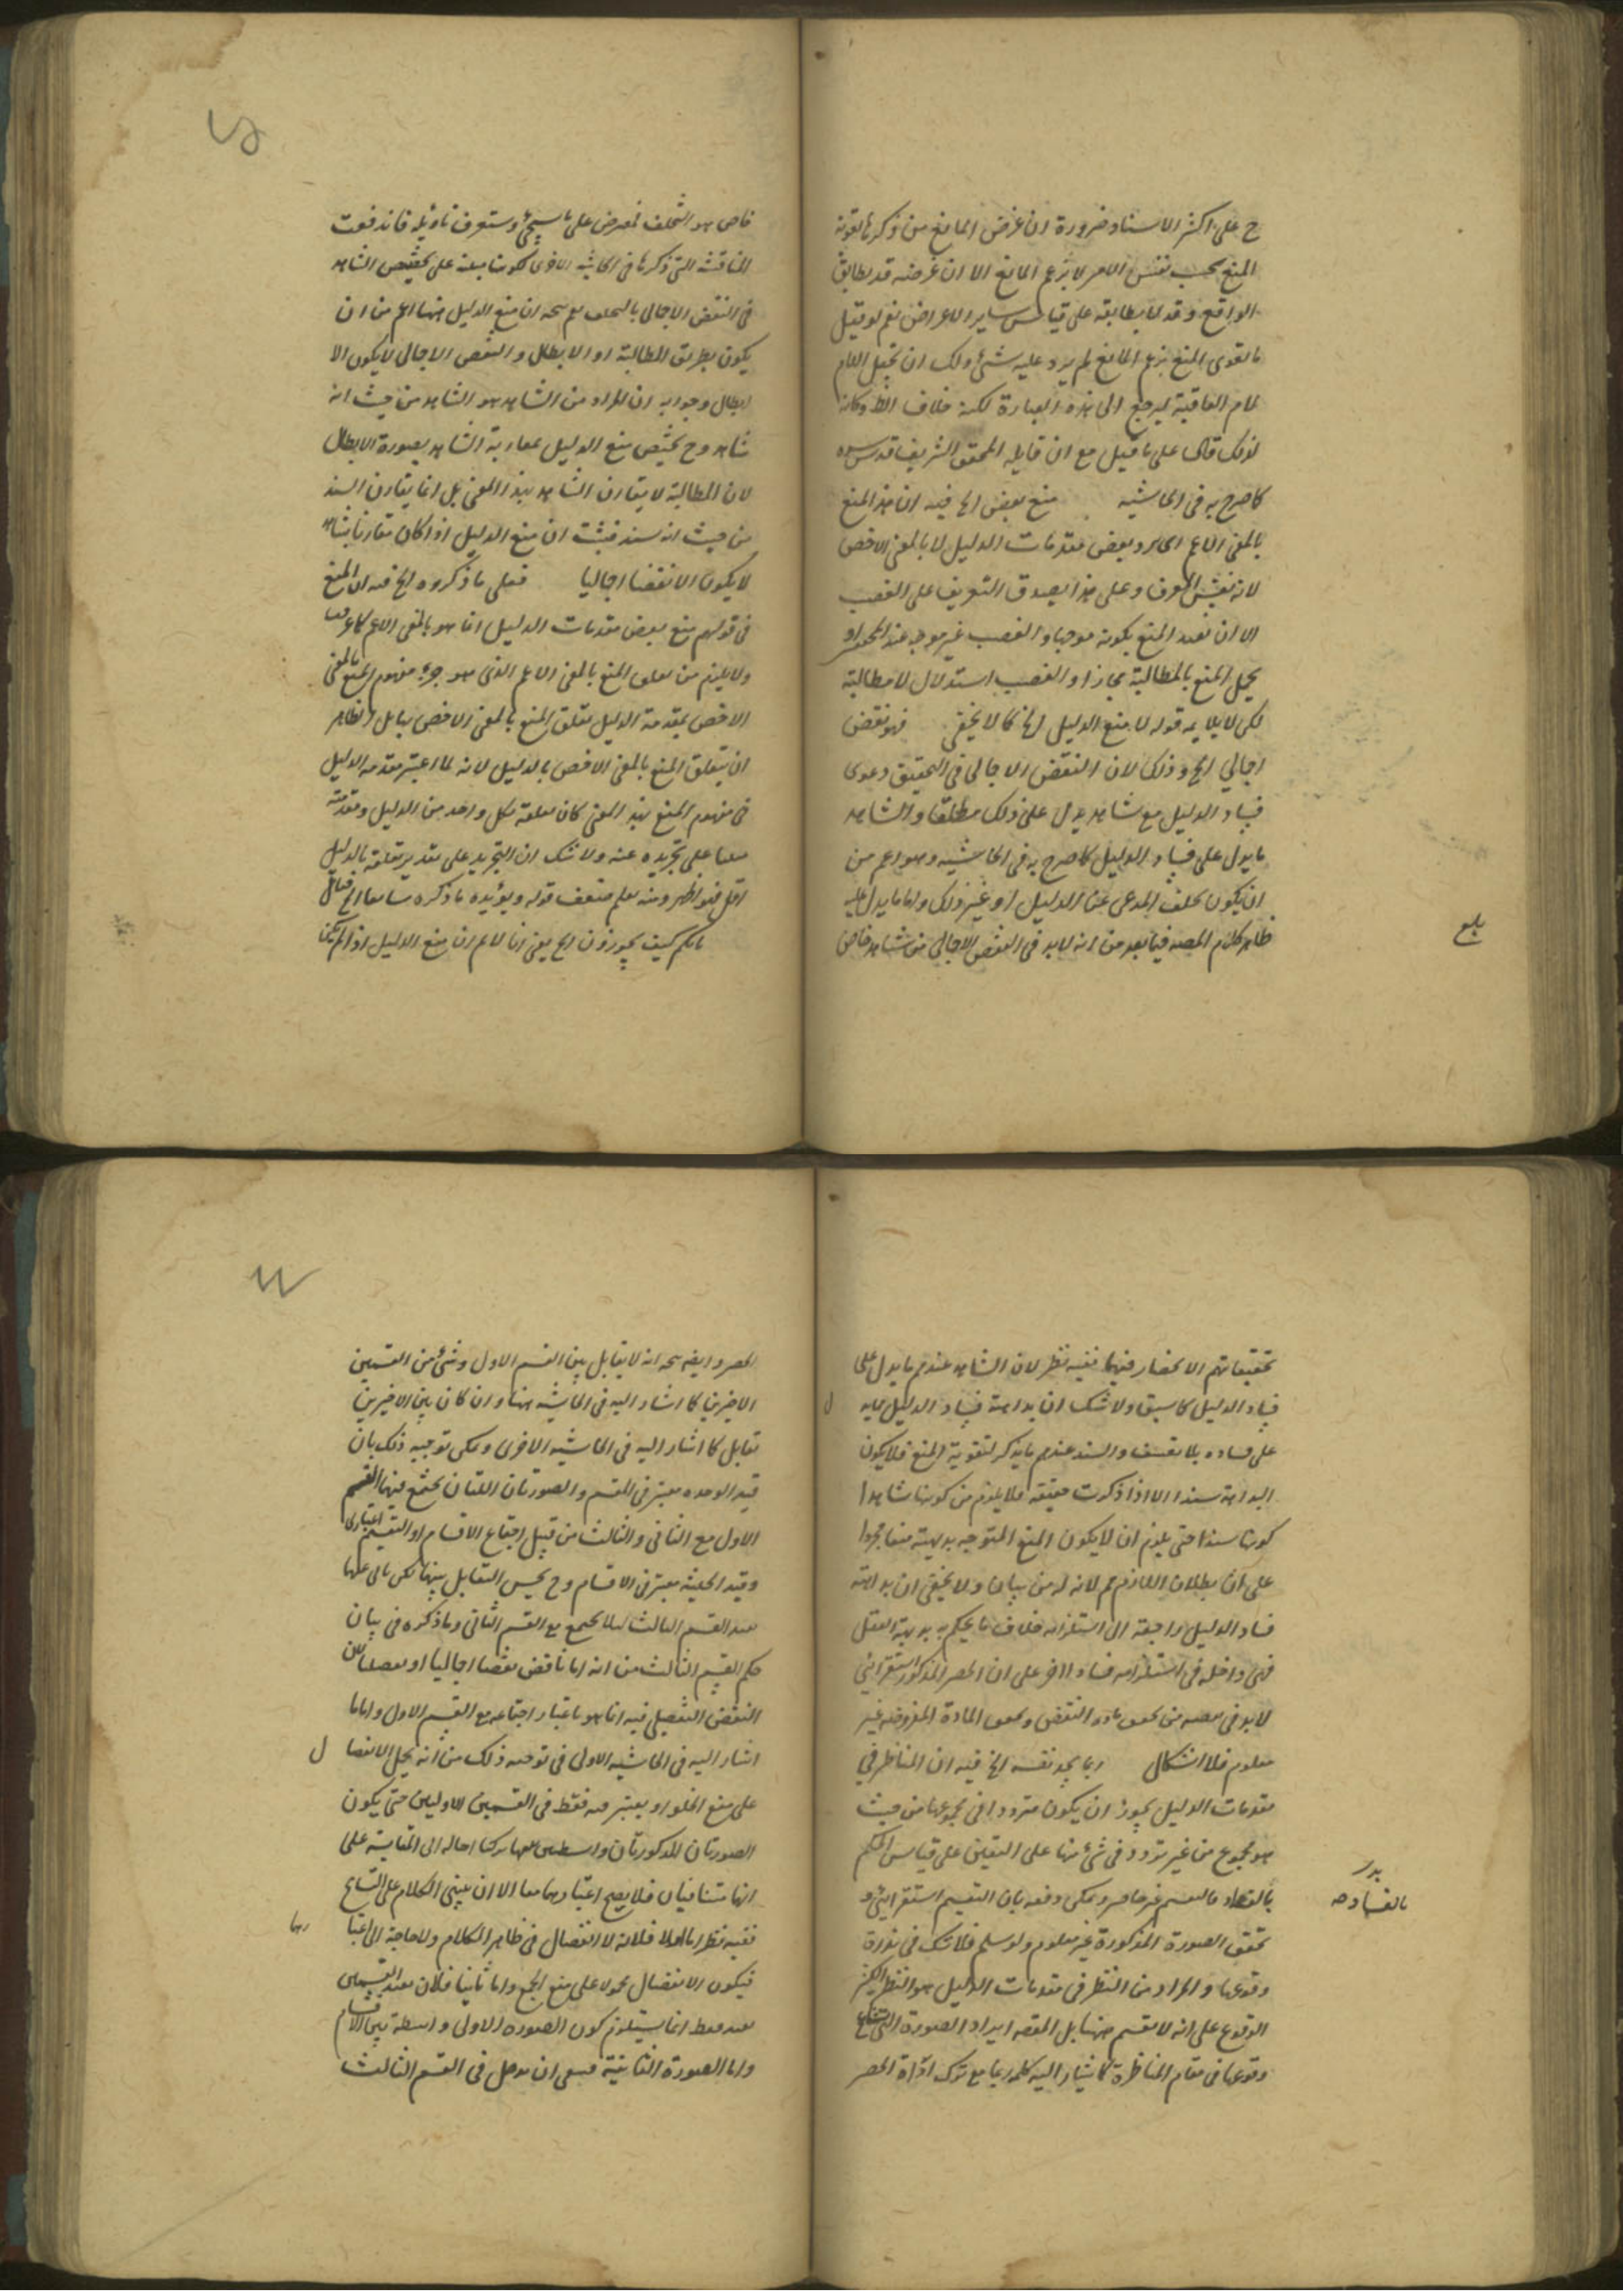 ح على اكثر الاسناد ضرورة ان غرض المانع من ذكرها تقوية
المنع بحسب نفس الامر لا بزعم المانع الا ان غرضه قد يطابق
الواقع وقد لا يطابقه على قياس ساير الاعراض نعم لو قيل
ما يقوى المنع بزعم المانع لم يرد عليه شئ ولك ان تجعل اللام
لام العاقبة ليرجع الى هذه العبارة لكنه خلاف الظ وكانه
لذلك قال على ما قيل مع ان قايله المحقق الشريف قدس سره
كما صرح به فى الحاشية منع بعض الخ فيه ان هذا المنع
بالمعنى الاعم وبعض مقدمات الدليل لا بالمعنى الاخص
لانه نفس المعرف وعلى هذا يصدق التعريف على الغصب
الا ان نعيد المنع بكونه موجها والغصب غير موجه عند او
يحمل المنع بالمطالبة مجازا والغصب استدلال لا مطالبة
لكن لا يلايمه قوله لا منع الدليل الخ كما لا يخفى فهو نقض
اجمالي الخ وذلك لان النقض الاجمالى فى التحقيق دعوى
فساد الدليل مع شاهد يدل على ذلك مطلقا والشاهد
ما يدل على فساد الدليل كما صرح به فى الحاشية وهو اعم من
ان يكون تخلف المدعى عن الدليل او غير ذلك واما ما يدل عليه
ظاهر كلام المصنف فيما بعد من انه لا بد فى النقض الاجمالى من شاهد خاص
بلغ
خاص هو التخلف فمعرض على ما سيجئ وستعرف تاويله فاندفعت
المناقشة التى ذكرها فى الحاشية الاخرى لكونها مبنية على تخصيص الشاهد
فى النقض الاجمالى بالتخلف نعم يتجه ان منع الدليل ههنا اعم من ان
يكون بطريق المطالبة او الابطال والنقض الاجمالى لا يكون الا
ابطال وجوابه ان المراد من الشاهد هو الشاهد من حيث انه
شاهد وح يختص منع الدليل بمقارنة الشاهد بصورة الابطال
لان المطالبة لا يقارن الشاهد بهذا المعنى بل انما يقارن السند
من حيث انه سند فثبت ان منع الدليل اذا كان مقارنا بشاهد
لا يكون الا نقضا اجماليا فعلى ما ذكروه الخ فيه ان المنع
فى قولهم منع بعض مقدمات الدليل انما هو بالمعنى الاعم كما عرفت
ولا يلزم من تعلق المنع بالمعنى الاعم الذى هو جزء مفهوم المنع بالمعنى
الاخص بمقدمة الدليل تعلق المنع بالمعنى الاخص بها بل الظاهر
ان يتعلق المنع بالمعنى الاخص بالدليل لانه لما اعتبر مقدمة الدليل
فى مفهوم المنع بهذا المعنى كان تعلقه بكل واحد من الدليل ومقدمته
مبنيا على تجريده عنه ولا شك ان التجريد على تقدير تعلقه بالدليل
اقل فهو اظهر ومنه يعلم ضعف قوله ويؤيده ما ذكره سابقا الخ فتأمل
ما لكم كيف يجوزون الخ يعنى انا لا نم ان منع الدليل اذا لم يكن
تحقيقاتهم الانحصار فيهما ففيه نظر لان الشاهد عندهم ما يدل على
فساد الدليل كما سبق ولا شك ان بداهة فساد الدليل يدل
على فساده بلا تعسف والسند عندهم ما يذكر لتقوية المنع فلا يكون
البداهة سندا الا اذا ذكرت حقيقة فلا يلزم من كونها شاهدا
كونها سندا حتى يلزم ان لا يكون المنع المتوجه بديهية منعا مجردا
على ان بطلان اللازم مم لانه له من بيان ولا يخفى ان بداهة
فساد الدليل راجعة الى استلزامه خلاف ما يحكم به بديهة العقل
فهى داخلة فى استلزامه فسادا اخر على ان الحصر المذكور استقرائى
لا بد فى نقضه من تحقق مادة النقض وتحقق المادة المفروضة غير
معلوم فلا اشكال ربما يجد نفسه الخ فيه ان المناظر فى
مقدمات الدليل يجوز ان يكون مترددا فى مجموعها من حيث
هو مجموع من غير تردد فى شئ منها على التعيين على قياس الحكم
بالفساد فالتقسيم غير حاصر ويمكن دفعه بان التقسيم استقرائى و
تحقق الصورة المذكورة غير معلوم ولو سلم فلا شك فى ندرة
وقوعها والمراد من النظر فى مقدمات الدليل هو النظر الكثير
الوقوع على انه لا تقسيم ههنا بل المقصد ايراد الصورة التى شاع
وقوعها فى مقام المناظرة كما يشار اليه كلمة ربما مع ترك اداة الحصر
بالفساد صح
الحصر وايضا يتجه انه لا يقابل بين القسم الاول وشئ من القسمين
الاخيرين كما اشار اليه فى الحاشية ههنا وان كان بين الاخيرين
تقابل كما اشار اليه فى الحاشية الاخرى ويمكن توجيه ذلك بان
قيد الوحدة معتبر فى المقسم والصورتان اللتان يجتمع فيهما القسم
الاول مع الثانى والثالث من قبيل اجتماع الاقسام او التقسيم اعتبارى
وقيد الحيثية معتبر فى الاقسام وح يحسن التقابل بينها لكن
القسم الثالث لئلا يجتمع مع القسم الثانى وما ذكره فى بيان
حكم القسم الثالث من انه اما ناقض نقضا اجماليا او تفصيليا لان
النقض التفصيلى فيه انما هو باعتبار اجتماعه مع القسم الاول واما ما
اشار اليه فى الحاشية الاولى فى توجيه ذلك من انه يحمل الانفصا ل
على منع الخلو او يعتبر قيد فقط فى القسمين الاوليين حتى يكون
الصورتان المذكورتان واسطتين تركتا احالة الى المقايسة على
انهما متنافيان فلا يصح اعتبارهما معا الا ان يبنى الكلام على التسامح
ففيه نظر اما اولا فلانه لا انفصال فى ظاهر الكلام ولا حاجة الى اعتبا رها
فيكون الانفصال محمولا على منع الجمع واما ثانيا فلان تقييد القسمين
بقيد فقط انما يستلزم كون الصورة الاولى واسطة بين الاقسام
واما الصورة الثانية فينبغى ان يدخل فى القسم الثالث